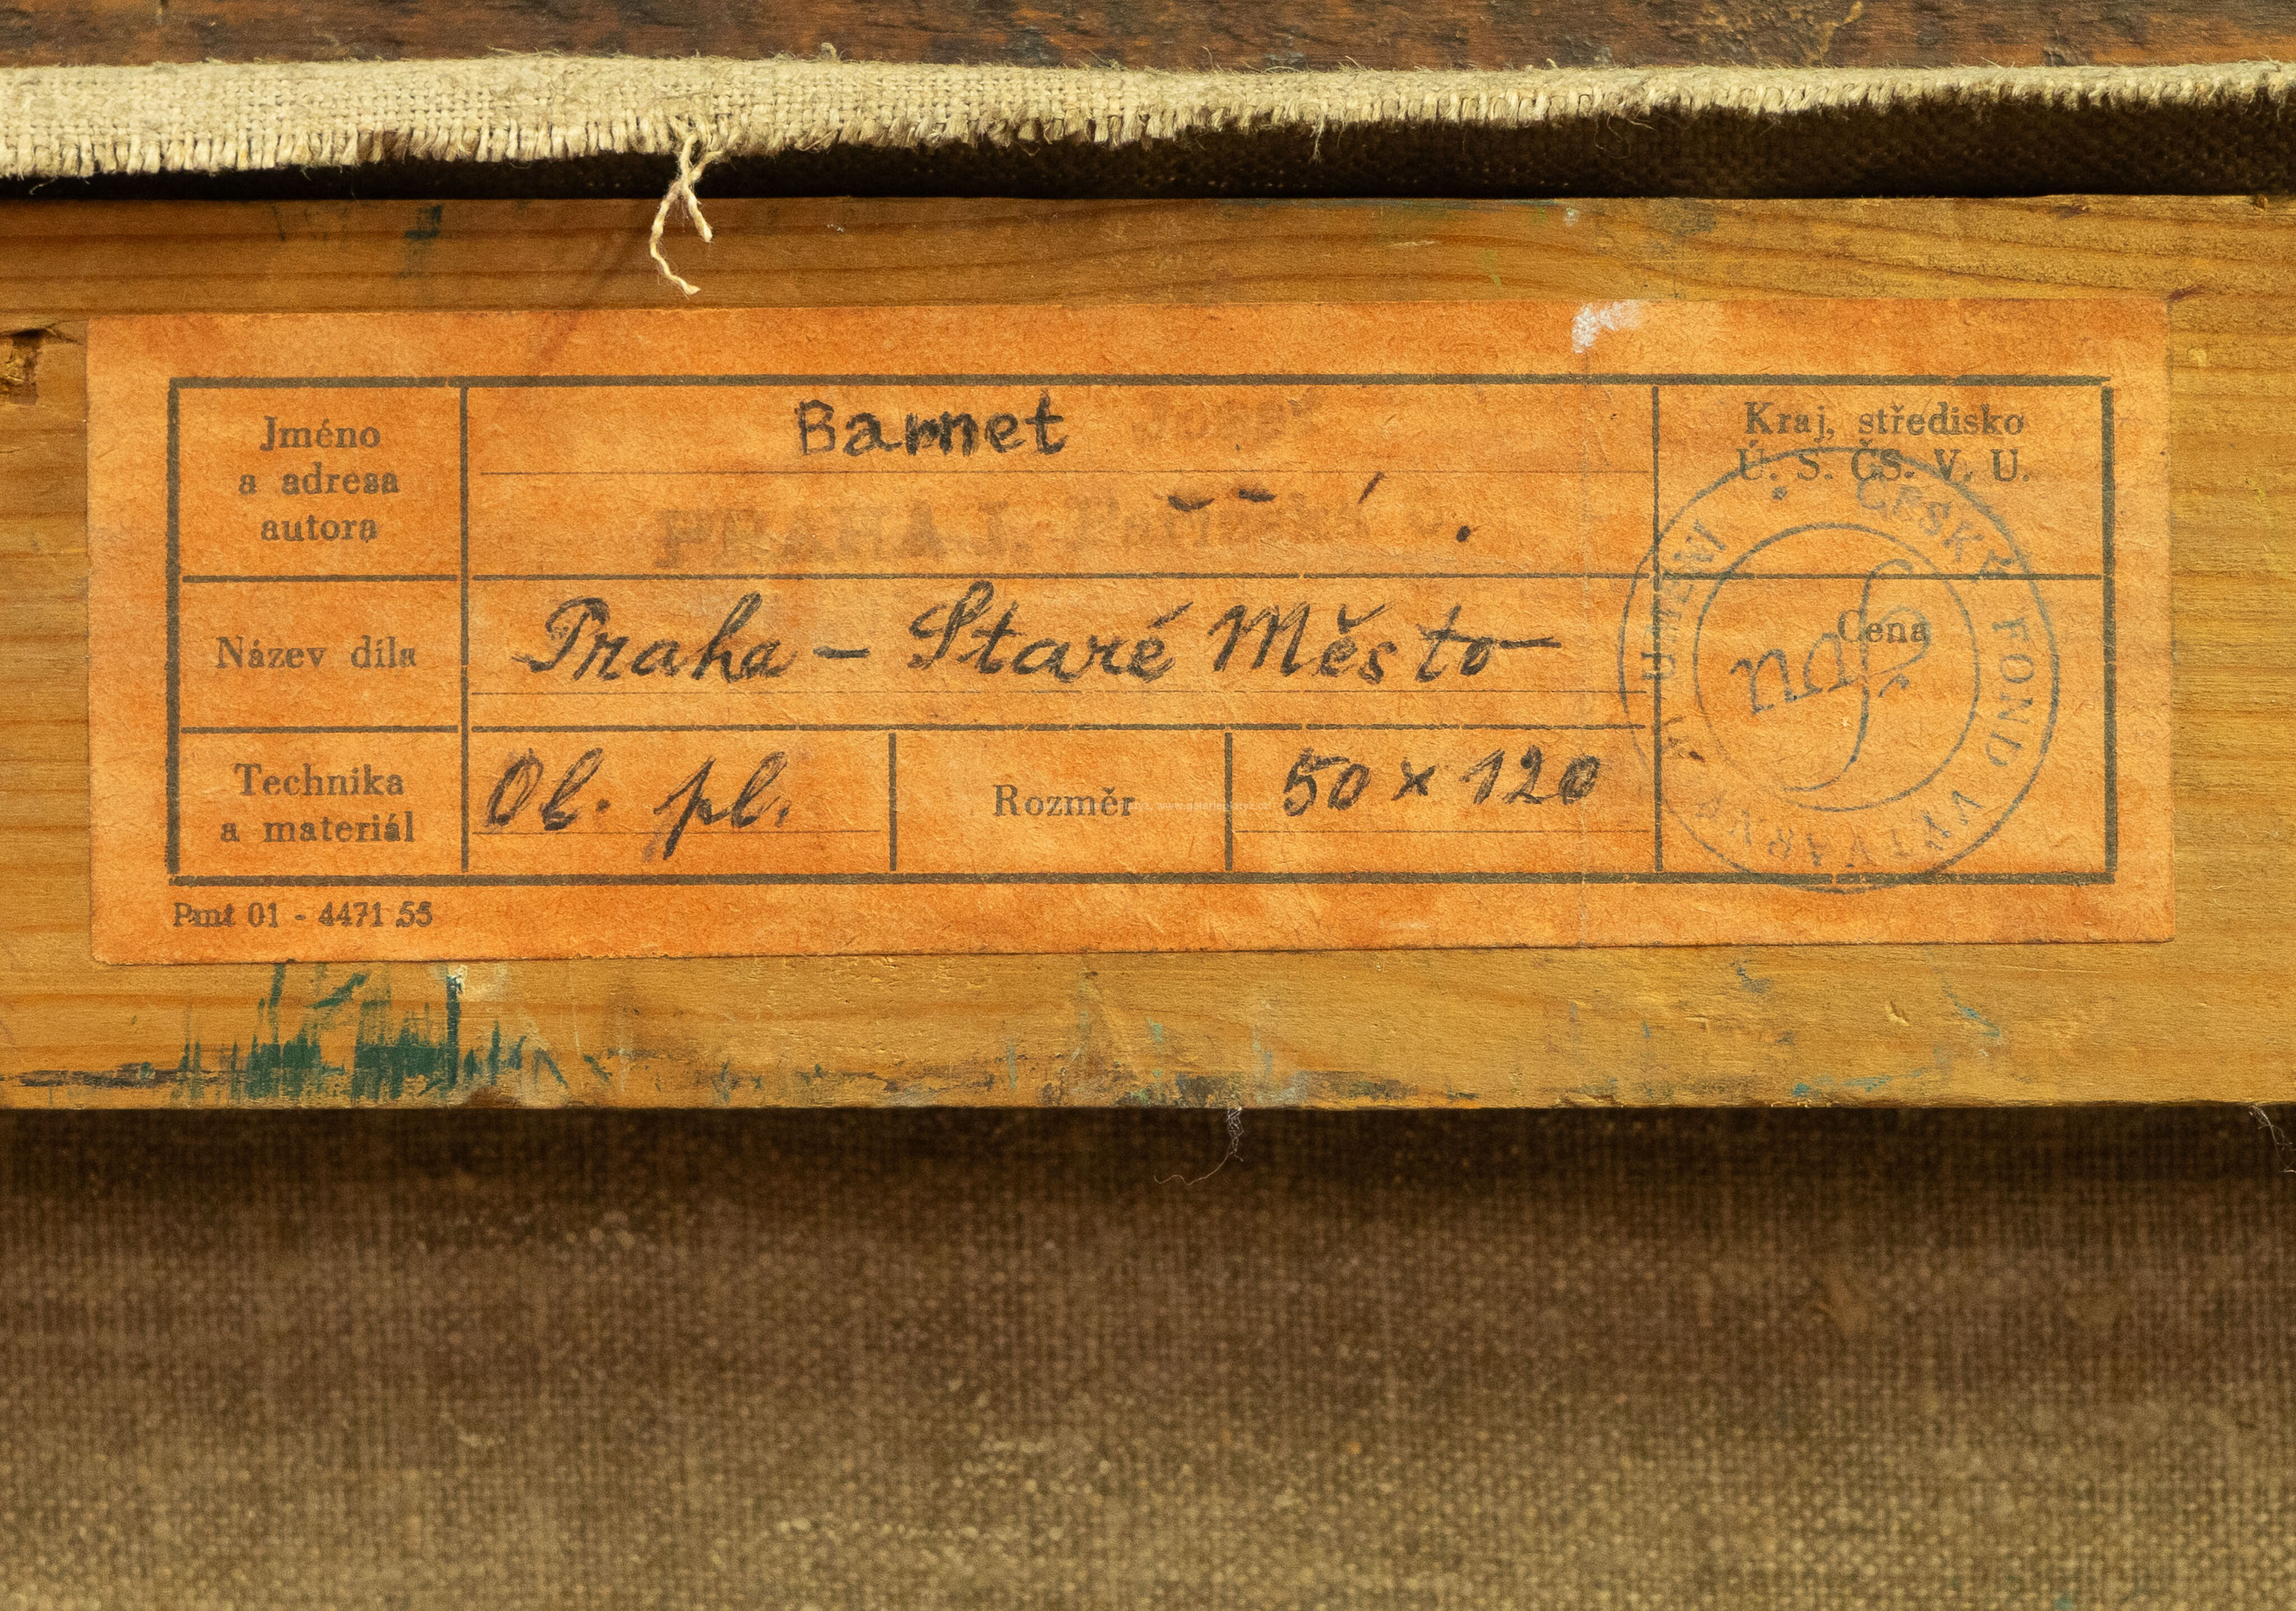 Jméno
a adresa
autora
Barnet
PRAHA I.
Kraj. středisko
Ú. S. ČS. V. U.
Název díla
Praha – Staré Město
Cena
Technika
a materiál
Ol. pl.
Rozměr
50 x 120
ČESKÝ FOND VÝTVARNÝCH UMĚNÍ
Pmt 01 - 4471 55